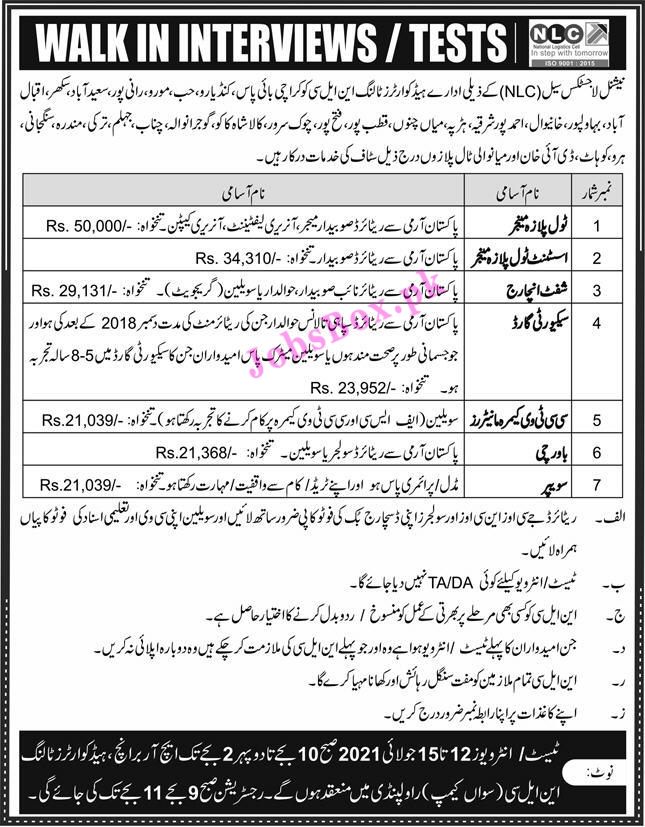 WALK IN INTERVIEWS / TESTS
NLC
National Logistics Cell
In step with tomorrow
ISO 9001 : 2015
نیشنل لاجسٹکس سیل (NLC) کے ذیلی ادارے ہیڈکوارٹرز ٹالنگ این ایل سی کو کراچی بائی پاس، کنڈیارو، حب، مورو، رانی پور، سعید آباد، سکھر، اقبال
آباد، بہاولپور، خانیوال، احمد پور شرقیہ، ہڑپہ، میاں چنوں، قطب پور، فتح پور، چوک سرور، کالاشاہ کاکو، گوجرانوالہ، چناب، جہلم، ترکی، مندرہ، سنگجانی،
ہرو، کوہاٹ، ڈی آئی خان اور میانوالی ٹال پلازوں درج ذیل سٹاف کی خدمات درکار ہیں۔
نمبر شمار نام آسامی نام آسامی
1 ٹول پلازہ منیجر پاکستان آرمی سے ریٹائرڈ صوبیدار میجر، آنریری لیفٹیننٹ، آنریری کیپٹن۔ تنخواہ: Rs. 50,000/-
2 اسسٹنٹ ٹول پلازہ منیجر پاکستان آرمی سے ریٹائرڈ صوبیدار۔ تنخواہ: Rs. 34,310/-
3 شفٹ انچارج پاکستان آرمی سے ریٹائرڈ نائب صوبیدار، حوالدار یا سویلین (گریجویٹ)۔ تنخواہ: Rs. 29,131/-
4 سیکیورٹی گارڈ پاکستان آرمی سے ریٹائرڈ سپاہی تا لانس حوالدار جن کی ریٹائرمنٹ کی مدت دسمبر 2018 کے بعد کی ہو اور
جو جسمانی طور پر صحت مند ہوں یا سویلین میٹرک پاس امیدواران جن کا سیکیورٹی گارڈ میں 5-8 سالہ تجربہ
ہو۔ تنخواہ: Rs. 23,952/-
5 سی سی ٹی وی کیمرہ مانیٹرز سویلین (ایف ایس سی اور سی سی ٹی وی کیمرہ پر کام کرنے کا تجربہ رکھتا ہو)۔ تنخواہ: Rs.21,039/-
6 باورچی پاکستان آرمی سے ریٹائرڈ سولجر یا سویلین۔ تنخواہ: Rs.21,368/-
7 سویپر مڈل/ پرائمری پاس ہو اور اپنے ٹریڈ/ کام سے واقفیت/ مہارت رکھتا ہو۔ تنخواہ: Rs.21,039/-
JobsBox.pk
الف۔ ریٹائرڈ جے سی اوز این سی اوز اور سولجرز اپنی ڈسچارج بک کی فوٹو کاپی ضرور ساتھ لائیں اور سویلین اپنی سی وی اور تعلیمی اسناد کی فوٹو کاپیاں
ہمراہ لائیں۔
ب۔ ٹیسٹ/ انٹرویو کیلئے کوئی TA/DA نہیں دیا جائے گا۔
ج۔ این ایل سی کو کسی بھی مرحلے پر بھرتی کے عمل کو منسوخ / ردوبدل کرنے کا اختیار حاصل ہے۔
د۔ جن امیدواران کا پہلے ٹیسٹ / انٹرویو ہوا ہے وہ اور جو پہلے این ایل سی کی ملازمت کر چکے ہیں وہ دوبارہ اپلائی نہ کریں۔
ر۔ این ایل سی تمام ملازمین کو مفت سنگل رہائش اور کھانا مہیا کرے گا۔
ز۔ اپنے کاغذات پر اپنا رابطہ نمبر ضرور درج کریں۔
نوٹ: ٹیسٹ / انٹرویوز 12 تا 15 جولائی 2021 صبح 10 بجے تا دوپہر 2 بجے تک ایچ آر برانچ، ہیڈکوارٹرز ٹالنگ
این ایل سی (سواں کیمپ) راولپنڈی میں منعقد ہوں گے۔ رجسٹریشن صبح 9 بجے 11 بجے تک کی جائے گی۔